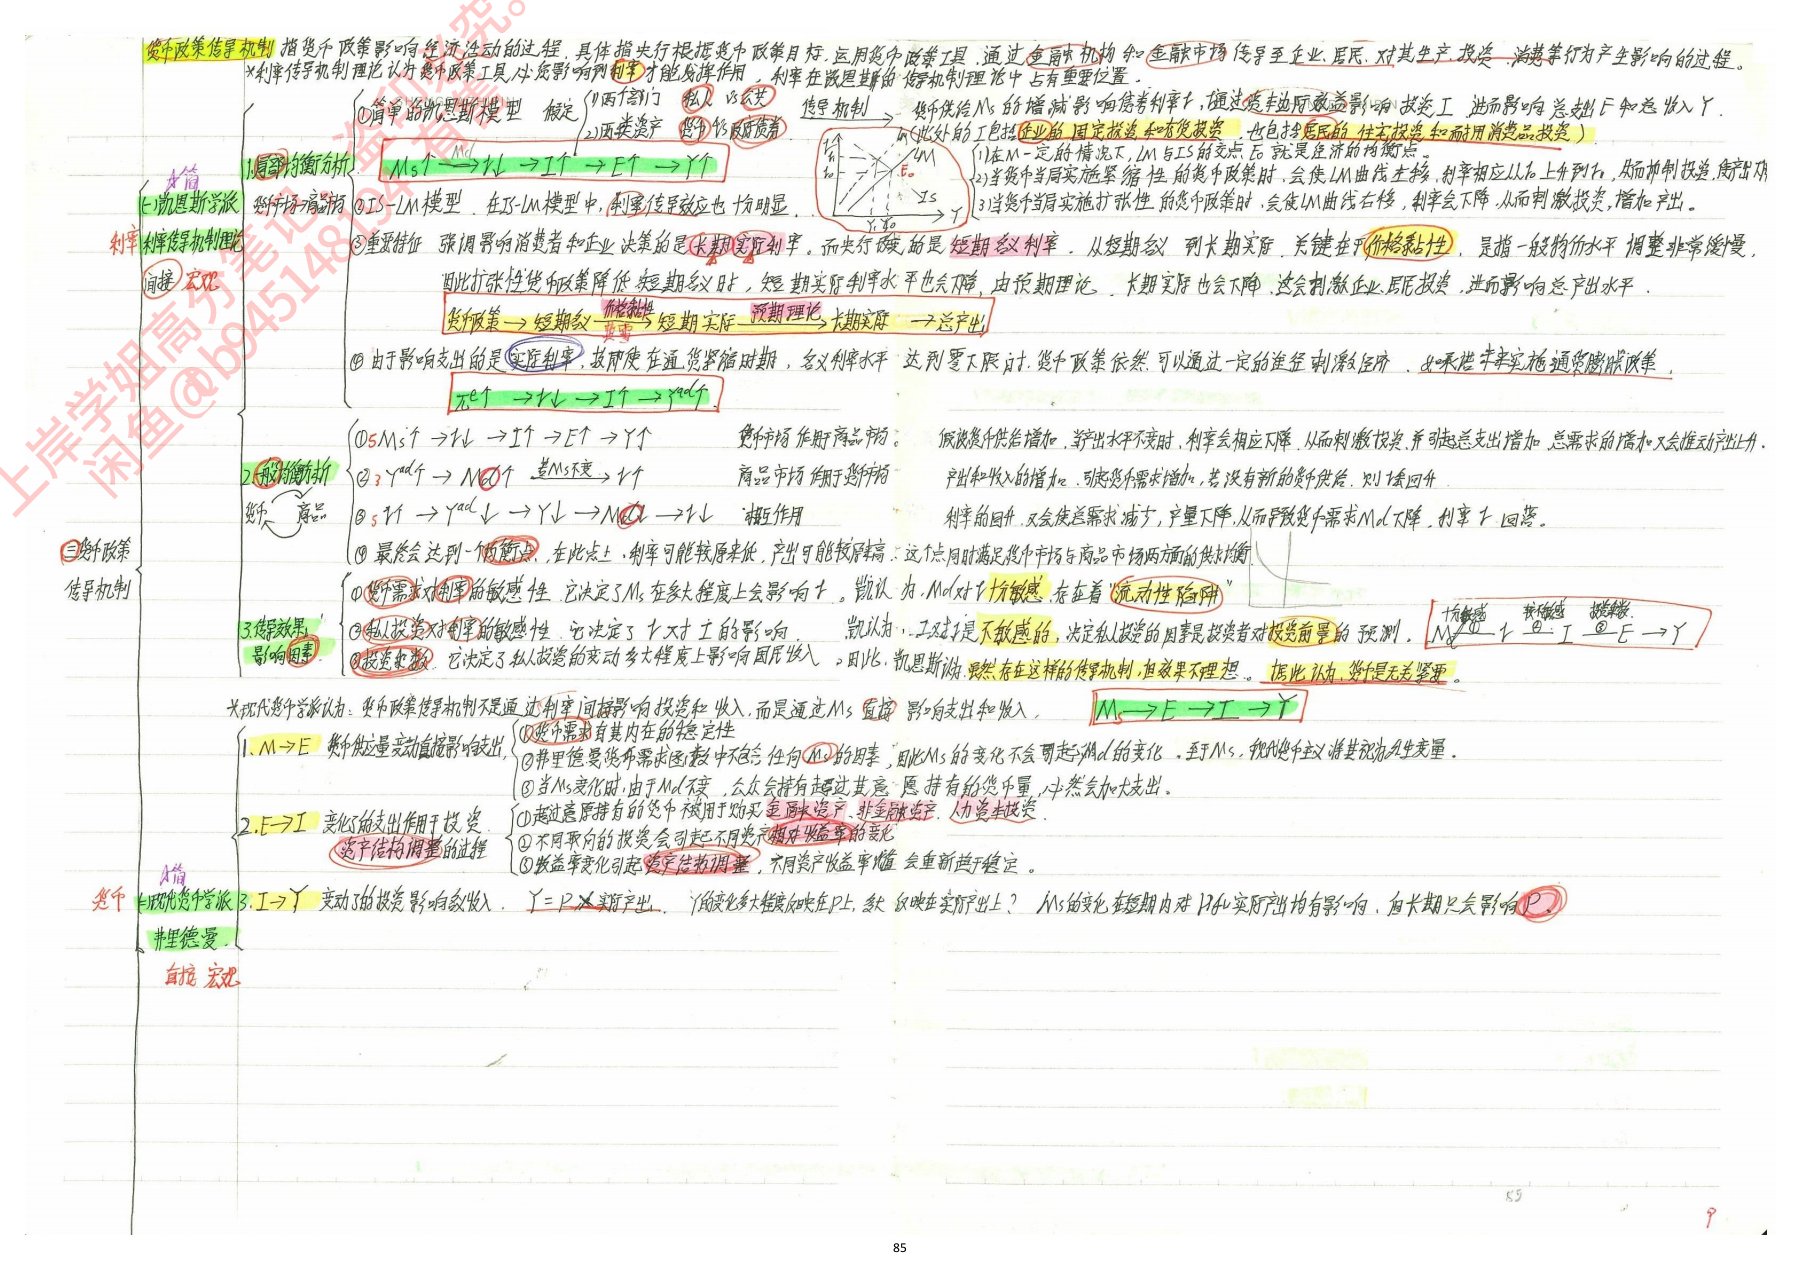 货币政策传导机制 指货币政策影响经济活动的过程,具体指央行根据货币政策目标,运用货币政策工具,通过金融机构和金融市场传导至企业、居民,对其生产、投资、消费等行为产生影响的过程。
*利率传导机制理论认为货币政策工具必须影响到利率才能发挥作用,利率在凯恩斯的传导机制理论中占有重要位置。
三货币政策
传导机制
A简
(一)凯恩斯学派
利率 利率传导机制理论
间接 宏观
1.局部均衡分析
货币市场→商品市场
①简单的凯恩斯模型 假定
1)两个部门 私人 VS 公共
2)两类资产 货币 VS 政府债券
传导机制 → 货币供给Ms的增减影响债券利率r,通过资本边际效益影响投资I,进而影响总支出E和总收入Y.
(此处的I包括企业的固定投资和存货投资,也包括居民的住宅投资和耐用消费品投资)
Md
Ms↑ → r↓ → I↑ → E↑ → Y↑
LM
E₀
IS
Y
Y₁ Y₀
②IS-LM模型 在IS-LM模型中,利率传导效应也十分明显.
1)在M一定的情况下,LM与IS的交点E₀就是经济的均衡点。
2)当货币当局实施紧缩性的货币政策时,会使LM曲线左移,利率相应从r₀上升到r₁,从而抑制投资,使产出
3)当货币当局实施扩张性的货币政策时,会使LM曲线右移,利率会下降,从而刺激投资,增加产出。
③重要特征 强调影响消费者和企业决策的是长期实际利率。而央行硬的是短期名义利率.从短期名义到长期实际,关键在于价格黏性,是指一般物价水平调整非常缓慢,
因此扩张性货币政策降低短期名义时,短期实际利率水平也会下降,由预期理论,长期实际也会下降,这会刺激企业、居民投资,进而影响总产出水平.
价格黏性 预期理论
货币政策 → 短期名义 → 短期实际 → 长期实际 → 总产出
④由于影响支出的是实际利率,故即使在通货紧缩时期,名义利率水平达到零下限时,货币政策依然可以通过一定的途径刺激经济.如承诺未来实施通货膨胀政策.
πe↑ → r↓ → I↑ → Yad↑.
2.一般均衡分析
货币 商品
①Ms↑ → r↓ → I↑ → E↑ → Y↑ 货币市场作用于商品市场。 假设货币供给增加,当产出水平不变时,利率会相应下降,从而刺激投资,并引起总支出增加,总需求的增加又会推动产出上升.
②Yad↑ → Md↑ 若Ms不变 → r↑ 商品市场作用于货币市场 产出和收入的增加,引起货币需求增加,若没有新的货币供给,则r会回升.
③r↑ → Yad↓ → Y↓ → Md↓ → r↓ 相互作用 利率的回升,又会使总需求减少,产量下降,从而导致货币需求Md下降,利率r回落。
④最终会达到一个均衡点,在此点上,利率可能较原来低,产出可能较原来高.这个点同时满足货币市场与商品市场两方面的供求均衡
3.传导效果
影响因素
①货币需求对利率的敏感性,它决定了Ms在多大程度上会影响r。凯认为,Md对r十分敏感,存在着"流动性陷阱"
②私人投资对利率的敏感性,它决定了r对I的影响. 凯认为,I对r是不敏感的,决定私人投资的因素是投资者对投资前景的预测.
③投资乘数,它决定了私人投资的变动多大程度上影响国民收入。因此,凯恩斯认为,虽然存在这样的传导机制,但效果不理想。据此认为,货币是无关紧要。
十分敏感 较不敏感 投资乘数
M → r → I → E → Y
*现代货币学派认为:货币政策传导机制不是通过利率间接影响投资和收入,而是通过Ms直接影响支出和收入.
Ms → E → I → Y
A简
货币 (二)现代货币学派
弗里德曼.
直接 宏观
1.M→E 货币供应量变动直接影响支出,
①货币需求有其内在的稳定性
②弗里德曼货币需求函数中不包含任何Ms的因素,因此Ms的变化不会引起Md的变化.至于Ms,现代货币主义将其视为外生变量.
③当Ms变化时,由于Md不变,公众会持有超过其意愿持有的货币量,必然会加大支出。
2.E→I 变化了的支出作用于投资.
资产结构调整的过程
①超过意愿持有的货币被用于购买金融资产、非金融资产、人力资本投资.
②不同取向的投资会引起不同资产相对收益率的变化
③收益率变化引起资产结构调整,不同资产收益率比值会重新趋于稳定。
3.I→Y 变动了的投资影响名收入. Y=P×实际产出. Y的变化多大程度反映在P上,多大反映在实际产出上?Ms的变化在短期内对P和实际产出均有影响,但长期只会影响P.
上岸学姐高分笔记
闲鱼@b94514819
盗印必究。
85